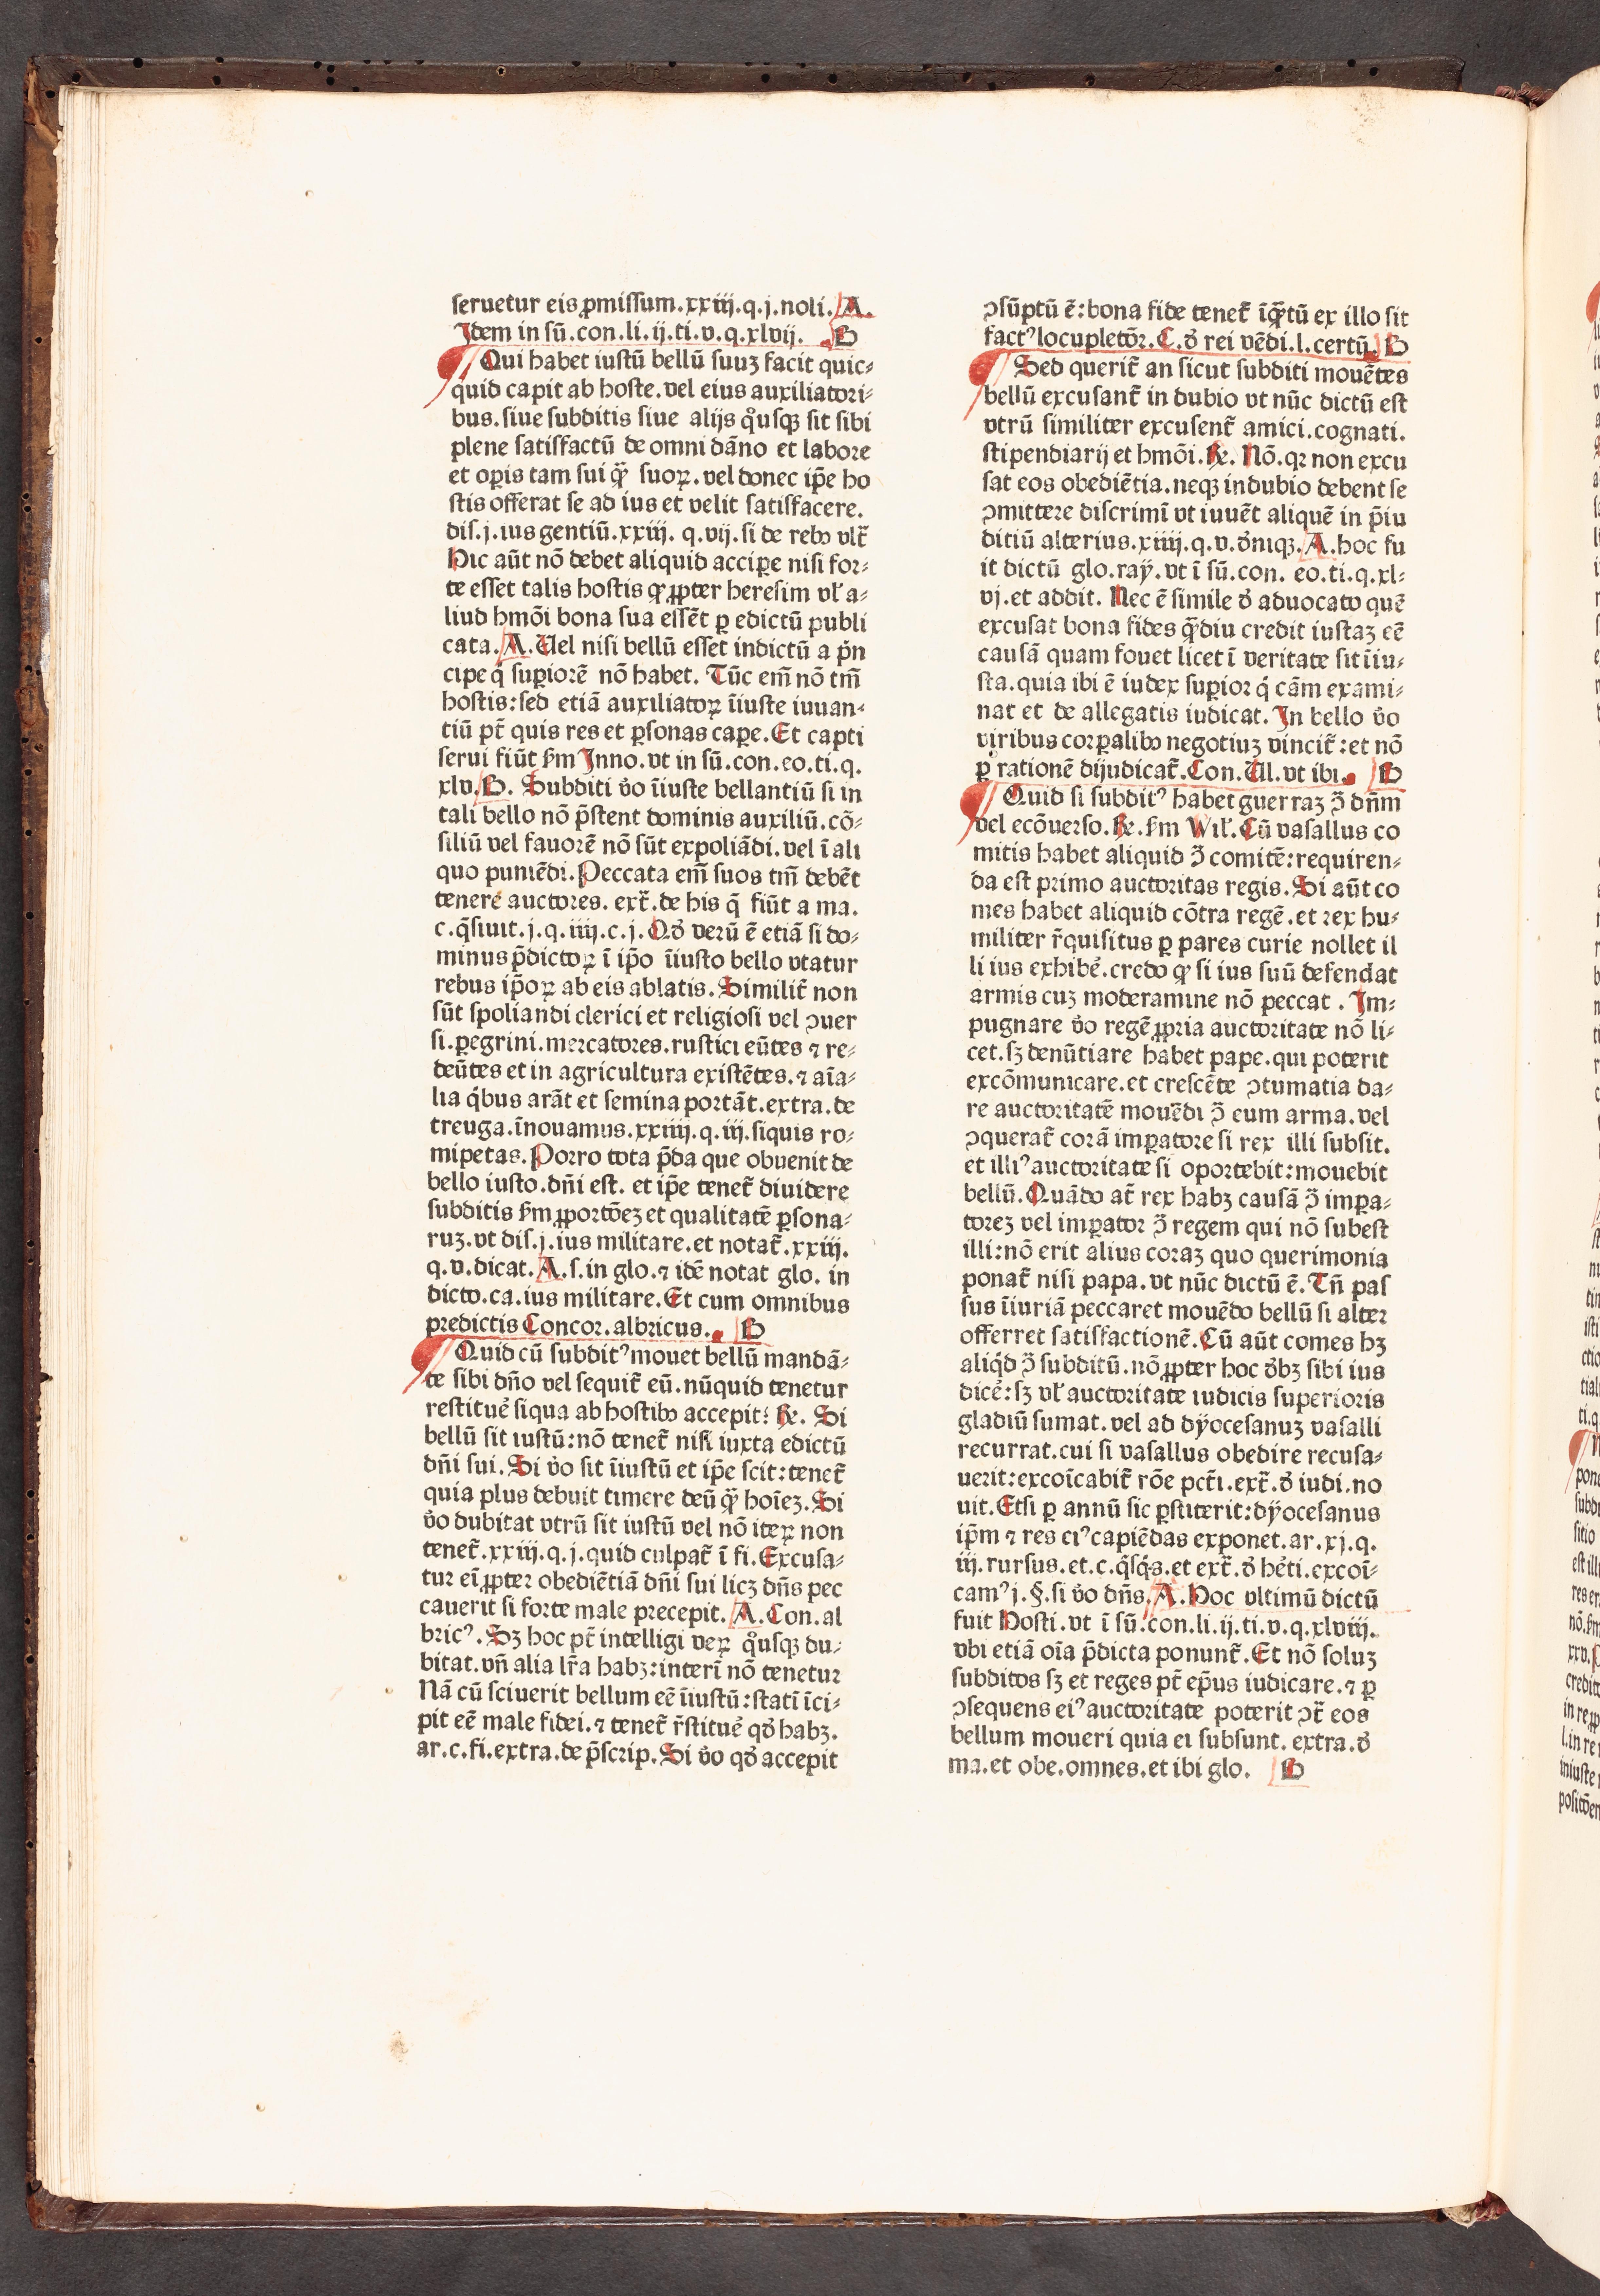 seruetur eis ꝓmissum.xxiij.q.j.noli. A.
Idem in sū.con.li.ij.ti.v.q.xlvij. B
Qui habet iustū bellū suuꝫ facit quic⸗
quid capit ab hoste.vel eius auxiliatori⸗
bus.siue subditis siue alijs qͦusqꝫ sit sibi
plene satisfactū de omni dāno et labore
et oꝑis tam sui qͣ̄ suoꝝ.vel donec ip̄e ho
stis offerat se ad ius et velit satisfacere.
dis.j.ius gentiū.xxiij. q.vij.si de rebꝰ vlt̄
Hic aūt nō debet aliquid accipe nisi for⸗
te esset talis hostis ꝙ ꝓpter heresim vl̓ a⸗
liud hmōi bona sua essēt ꝑ edictū publi
cata. A. Uel nisi bellū esset indictū a pn̄
cipe q̇ suꝑiorē nō habet. Tūc em̄ nō tm̄
hostis:sed etiā auxiliatoꝝ īiuste iuuan⸗
tiū pt̄ quis res et ꝑsonas caꝑe.Et capti
serui fiūt ẜm Inno.vt in sū.con.eo.ti.q.
xlv. B. Subditi v̓o īiuste bellantiū si in
tali bello nō p̄stent dominis auxiliū.cō⸗
siliū vel fauorē nō sūt expoliādi.vel ī ali
quo puniēdi.Peccata em̄ suos tm̄ debēt
tenere auctores. ext̄.de his q̄ fiūt a ma.
c.q̄siuit.j.q.iiij.c.j.Qd̓ verū ē etiā si do⸗
minus p̄dictoꝝ ī ip̄o īiusto bello vtatur
rebus ip̄oꝝ ab eis ablatis.Similit̄ non
sūt spoliandi clerici et religiosi vel ꝯuer
si.ꝑegrini.mercatores.rustici eūtes ⁊ re⸗
deūtes et in agricultura existētes.⁊ aīa⸗
lia q̇bus arāt et semina portāt.extra.de
treuga.īnouamus.xxiiij.q.iij.siquis ro⸗
mipetas.Porro tota p̄da que obuenit de
bello iusto.dn̄i est. et ip̄e tenet̄ diuidere
subditis ẜm ꝓportōeꝫ et qualitatē ꝑsona⸗
ruꝫ.vt dis.j.ius militare.et notat̄.xxiij.
q.v.dicat. A.s.in glo.⁊ idē notat glo. in
dicto.ca.ius militare.Et cum omnibus
predictis Concor.albricus. B
Quid cū subditꝰ mouet bellū mandā⸗
te sibi dn̄o vel sequit̄ eū.nūquid tenetur
restitue̓ siqua ab hostibꝰ accepit: ℞. Si
bellū sit iustū:nō tenet̄ nisi iuxta edictū
dn̄i sui.Si v̓o sit īiustū et ip̄e scit:tenet̄
quia plus debuit timere deū qͣ̄ hoīeꝫ.Si
v̓o dubitat vtrū sit iustū vel nō iteꝝ non
tenet̄.xxiij.q.j.quid culpat̄ ī fi.Excusa⸗
tur eī ꝓpter obediētiā dn̄i sui licꝫ dn̄s pec
cauerit si forte male precepit. A.Con.al
bricꝰ.Sꝫ hoc pt̄ intelligi veꝝ qͦusqꝫ du⸗
bitat.vn̄ alia lr̄a habꝫ:interī nō tenetur
Nā cū sciuerit bellum eē īiustū:statī īci⸗
pit eē male fidei.⁊ tenet̄ r̄stitue̓ qd̓ habꝫ.
ar.c.fi.extra.de p̄scrip.Si v̓o qd̓ accepit
ꝯsūptū ē:bona fide tenet̄ īqͣ̄tū ex illo sit
factꝰ locupletōr. C.d̓ rei vēdi.l.certū. B
Sed querit̄ an sicut subditi mouētes
bellū excusant̄ in dubio vt nūc dictū est
vtrū similiter excusent̄ amici.cognati.
stipendiarij et hmōi.℞. Nō.qꝛ non excu
sat eos obediētia.neqꝫ indubio debent se
ꝯmittere discrimī vt iuuēt aliquē in p̄iu
ditiū alterius.xiiij.q.v.d̓niqꝫ.A.hoc fu
it dictū glo.raẏ.vt ī sū.con. eo.ti.q.xl⸗
vj.et addit. Nec ē simile d̓ aduocato quē
excusat bona fides qͣ̄diu credit iustaꝫ eē
causā quam fouet licet ī veritate sit īiu⸗
sta.quia ibi ē iudex suꝑior q̇ cām exami⸗
nat et de allegatis iudicat. In bello v̓o
viribus corꝑalibꝰ negotiuꝫ vincit̄:et nō
ꝑ rationē dijudicat̄.Con.Ul.vt ibi. B
Quid si subditꝰ habet guerraꝫ ꝯ̄ dn̄m
vel ecōuerso.℞.ẜm Wil̓.Cū vasallus co
mitis habet aliquid ꝯ̄ comitē:requiren⸗
da est primo auctoritas regis.Si aūt co
mes habet aliquid cōtra regē.et rex hu⸗
militer r̄quisitus ꝑ pares curie nollet il
li ius exhibe̓.credo ꝙ si ius suū defendat
armis cuꝫ moderamine nō peccat . Im⸗
pugnare v̓o regē ꝓpria auctoritate nō li⸗
cet.sꝫ denūtiare habet pape.qui poterit
excōmunicare.et crescēte ꝯtumatia da⸗
re auctoritatē mouēdi ꝯ̄ eum arma.vel
ꝯquerat̄ corā imꝑatore si rex illi subsit.
et illiꝰ auctoritate si oportebit:mouebit
bellū.Quādo at̄ rex habꝫ causā ꝯ̄ imꝑa⸗
toreꝫ vel imꝑator ꝯ̄ regem qui nō subest
illi:nō erit alius coraꝫ quo querimonia
ponat̄ nisi papa.vt nūc dictū ē.Tn̄ pas
sus īiuriā peccaret mouēdo bellū si alter
offerret satisfactionē.Cū aūt comes hꝫ
aliq̇d ꝯ̄ subditū.nō ꝓpter hoc d̓bꝫ sibi ius
dice̓:sꝫ vl̓ auctoritate iudicis superioris
gladiū sumat.vel ad dẏocesanuꝫ vasalli
recurrat.cui si vasallus obedire recusa⸗
uerit:excoīcabit̄ rōe pct̄i.ext̄.d̓ iudi.no
uit.Etsi ꝑ annū sic ꝑstiterit:dẏocesanus
ip̄m ⁊ res eiꝰ capiēdas exponet.ar.xj.q.
iij.rursus.et.c.q̇sq̇s.et ext̄.d̓ he̓ti.excoī⸗
camꝰ j.§.si v̓o dn̄s.A.Hoc vltimū dictū
fuit Hosti.vt ī sū.con.li.ij.ti.v.q.xlviij.
vbi etiā oīa p̄dicta ponunt̄.Et nō soluꝫ
subditos sꝫ et reges pt̄ ep̄us iudicare.⁊ ꝑ
ꝯsequens eiꝰ auctoritate poterit ꝯt̄ eos
bellum moueri quia ei subsunt. extra.d̓
ma.et obe.omnes.et ibi glo. B